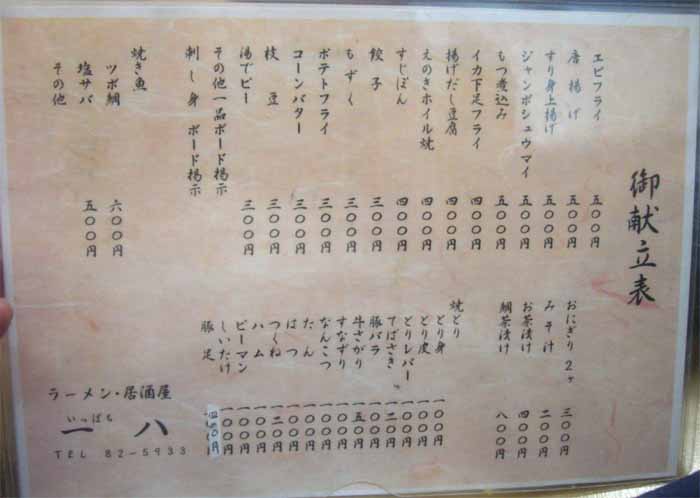 御献立表
エビフライ 五〇〇円
唐揚げ 五〇〇円
すり身上揚げ 五〇〇円
ジャンボシュウマイ 五〇〇円
もつ煮込み 五〇〇円
イカ下足フライ 四〇〇円
揚げだし豆腐 四〇〇円
えのきホイル焼 四〇〇円
すじぽん 四〇〇円
餃子 三〇〇円
もずく 三〇〇円
ポテトフライ 三〇〇円
コーンバター 三〇〇円
枝豆 三〇〇円
湯でピー 三〇〇円
その他一品ボード掲示
刺し身 ボード掲示
焼き魚
ツボ鯛 六〇〇円
塩サバ 五〇〇円
その他
おにぎり2ヶ 三〇〇円
みそ汁 二〇〇円
お茶漬け 四〇〇円
鯛茶漬け 八〇〇円
焼とり
とり身 一〇〇円
とり皮 一〇〇円
とりレバー 一〇〇円
てばさき 二〇〇円
豚バラ 一〇〇円
牛さがり 五〇〇円
すなずり 一〇〇円
なんこつ 一〇〇円
たん 一〇〇円
はつ 一〇〇円
つくね 二〇〇円
ハム 一〇〇円
ピーマン 一〇〇円
しいたけ 一〇〇円
豚足
ラーメン・居酒屋
いっぱち
一八
TEL 82-5933